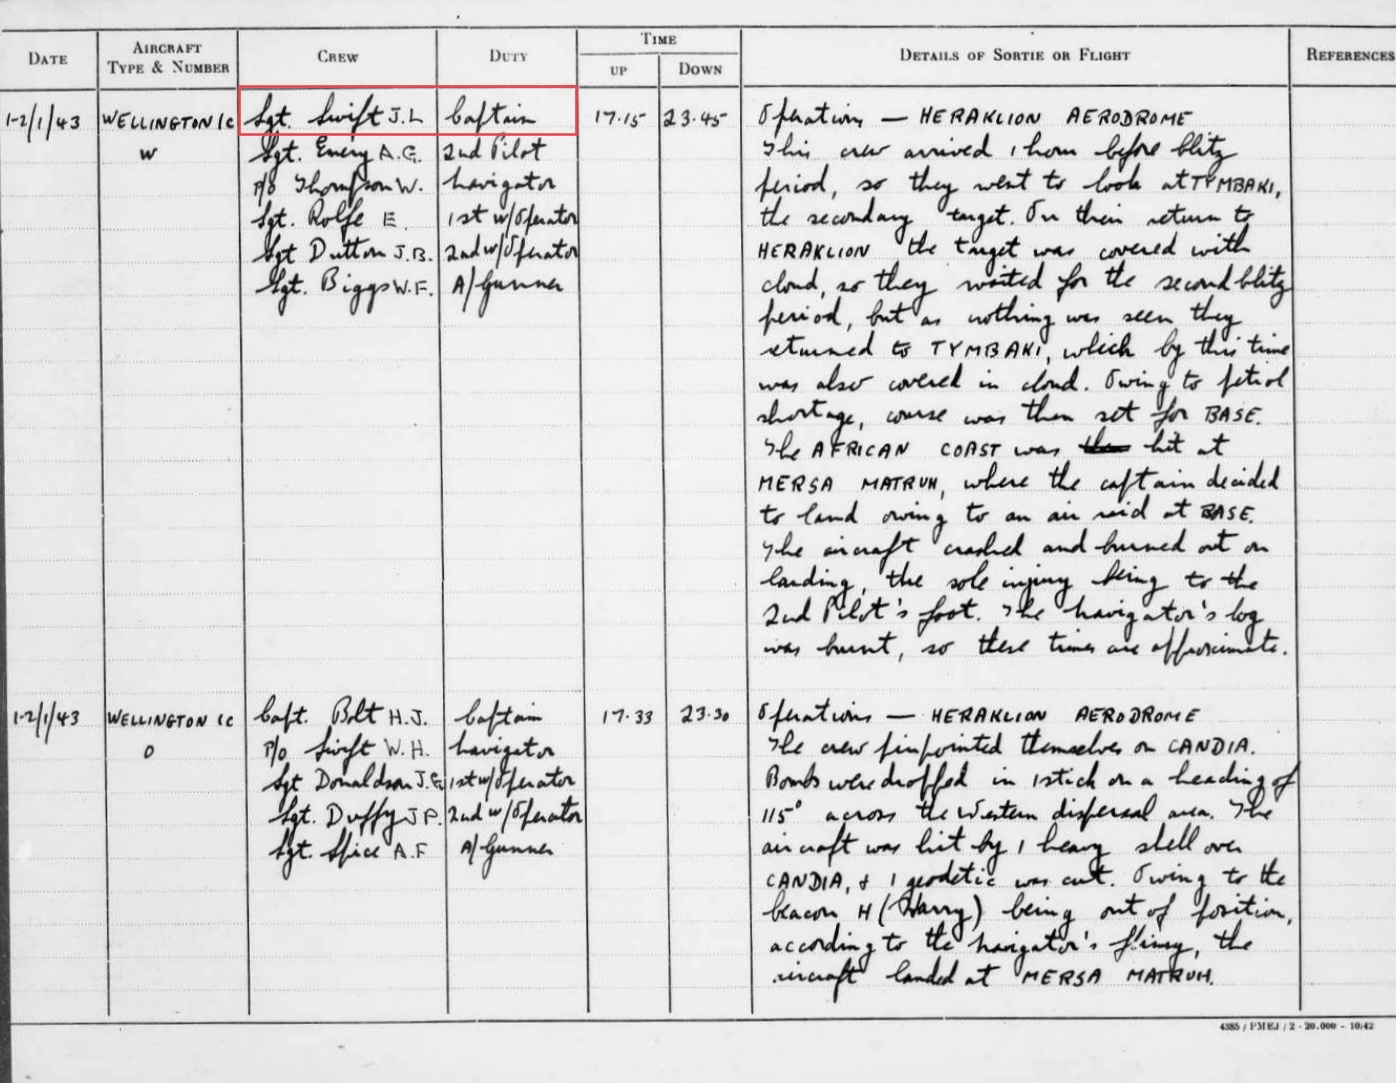 DATE AIRCRAFT TYPE & NUMBER CREW DUTY TIME UP DOWN DETAILS OF SORTIE OR FLIGHT REFERENCES
1-2/1/43 WELLINGTON 1c Sgt. Swift J.L Captain 17.15 23.45 Operations — HERAKLION AERODROME
W Sgt. Emery A.G. 2nd Pilot This crew arrived 1 hour before blitz
P/O Thompson W. Navigator period, so they went to look at TYMBAKI,
Sgt. Rolfe E. 1st w/Operator the secondary target. On their return to
Sgt Dutton J.B. 2nd w/Operator HERAKLION the target was covered with
Sgt. Biggs W.F. A/Gunner cloud, so they waited for the second blitz
period, but as nothing was seen they
returned to TYMBAKI, which by this time
was also covered in cloud. Owing to petrol
shortage, course was then set for BASE.
The AFRICAN COAST was hit at
MERSA MATRUH, where the captain decided
to land owing to an air raid at BASE.
The aircraft crashed and burned out on
landing, the sole injury being to the
2nd Pilot's foot. The Navigator's log
was burnt, so these times are approximate.
1-2/1/43 WELLINGTON 1c Capt. Bolt H.J. Captain 17.33 23.30 Operations — HERAKLION AERODROME
O P/O Swift W.H. Navigator The crew pinpointed themselves on CANDIA.
Sgt Donaldson J.G. 1st w/Operator Bombs were dropped in 1 stick on a heading of
Sgt. Duffy J.P. 2nd w/Operator 115° across the Western dispersal area. The
Sgt. Spice A.F A/Gunner aircraft was hit by 1 heavy shell over
CANDIA, & 1 geodetic was cut. Owing to the
beacon H (Harry) being out of position,
according to the Navigator's flimsy, the
aircraft landed at MERSA MATRUH.
4385 / PMEJ / 2 - 20.000 - 10/42